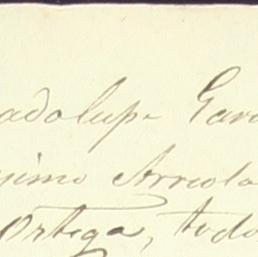 adalupe Gar
simo Arriola
Ortega, todo